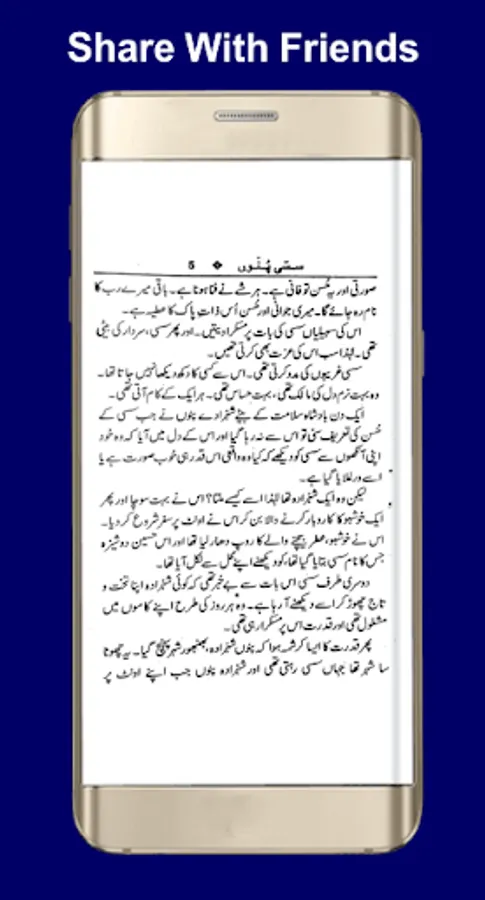 Share With Friends
سسی پُنّوں ❖ 5
صورتی اور یہ حُسن تو فانی ہے۔ ہر شے نے فنا ہونا ہے۔ باقی میرے رب کا
نام رہ جائے گا۔ میری جوانی اور حُسن اُس ذات پاک کا عطیہ ہے۔
اس کی سہیلیاں سسی کی بات پر مسکرا دیتیں۔ اور پھر سسی، سردار کی بیٹی
تھی۔ لہٰذا سب اس کی عزت بھی کرتی تھیں۔
سسی غریبوں کی مدد کرتی تھی۔ اس سے کسی کا دکھ دیکھا نہیں جاتا تھا۔
وہ بہت نرم دل کی مالک تھی، بہت حساس تھی۔ ہر ایک کے کام آتی تھی۔
ایک دن بادشاہ سلامت کے بیٹے شہزادے پنوں نے جب سسی کے
حُسن کی تعریف سنی تو اس سے نہ رہا گیا اور اس کے دل میں آیا کہ وہ خود
اپنی آنکھوں سے سسی کو دیکھے کہ کیا وہ واقعی اس قدر ہی خوب صورت ہے یا
اسے ورغلایا گیا ہے۔
لیکن وہ ایک شہزادہ تھا لہٰذا اسے کیسے ملتا؟ اس نے بہت سوچا اور پھر
ایک خوشبو کا کاروبار کرنے والا بن کر اس نے اونٹ پر سفر شروع کر دیا۔
اس نے خوشبو، عطر بیچنے والے کا روپ دھار لیا تھا اور اس حسین دوشیزہ
جس کا نام سسی بتایا گیا تھا، کو دیکھنے اپنے محل سے نکل آیا تھا۔
دوسری طرف سسی اس بات سے بے خبر تھی کہ کوئی شہزادہ اپنا تخت و
تاج چھوڑ کر اسے دیکھنے آ رہا ہے۔ وہ ہر روز کی طرح اپنے کاموں میں
مشغول تھی اور قدرت اس پر مسکرا رہی تھی۔
پھر قدرت کا ایسا کرشمہ ہوا کہ پنوں شہزادہ، بھنبھور شہر پہنچ گیا۔ یہ چھوٹا
سا شہر تھا جہاں سسی رہتی تھی اور شہزادہ پنوں جب اپنے اونٹ پر